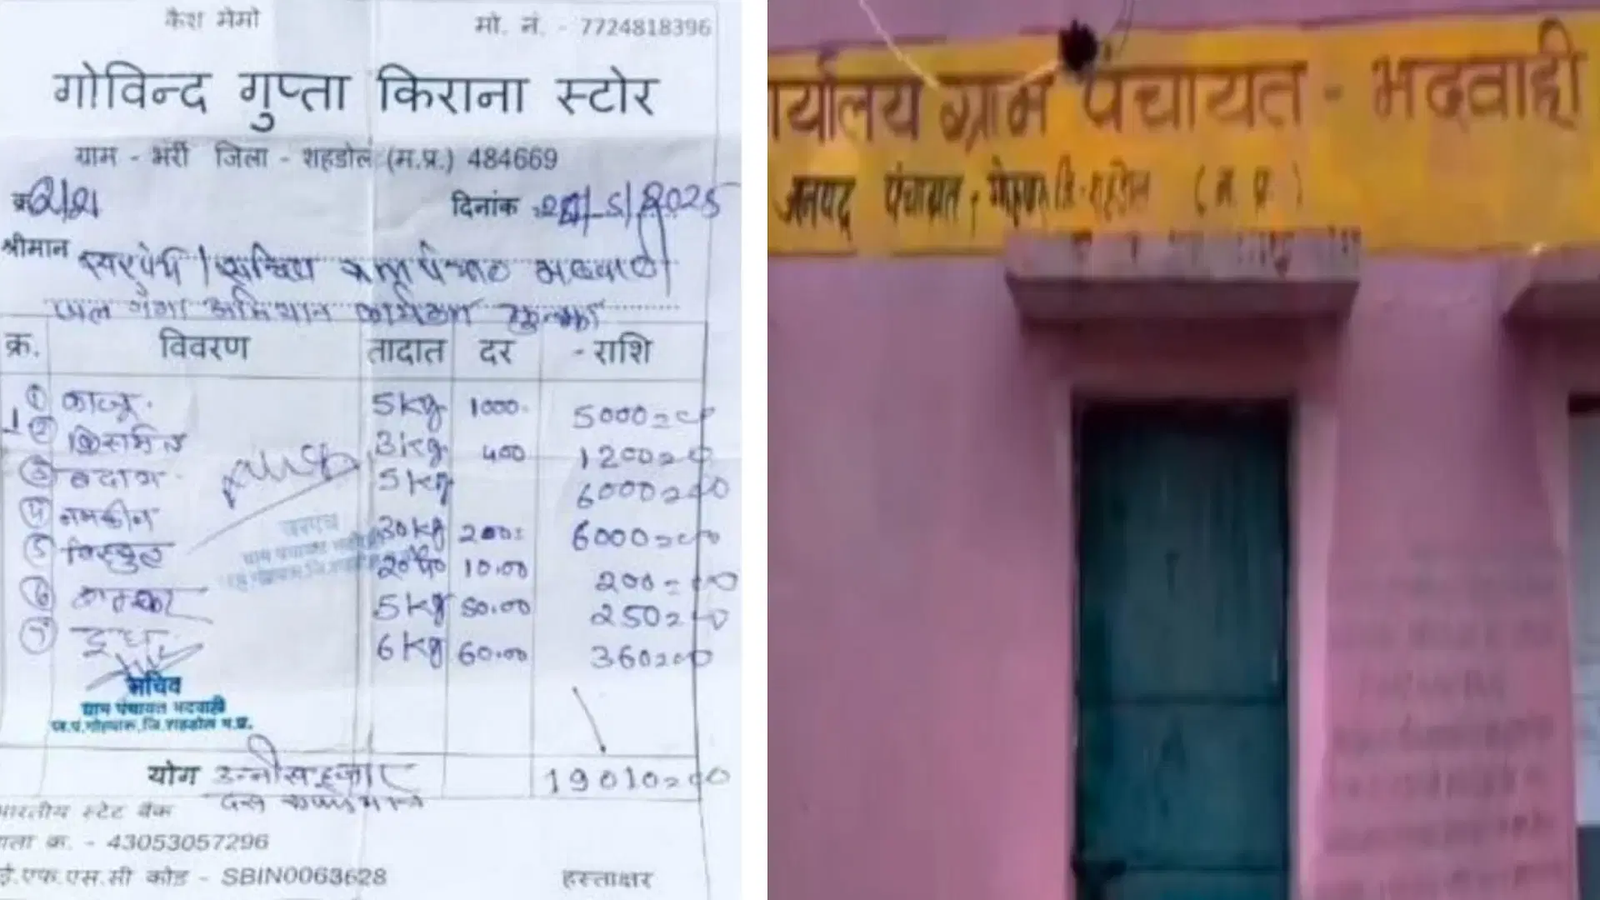 कैश मेमो
मो. नं. - 7724818396
गोविन्द गुप्ता किराना स्टोर
ग्राम - भर्री जिला - शहडोल (म.प्र.) 484669
क्र
दिनांक
श्रीमान सरपंच / सचिव ग्राम पंचायत भदवाही
जल गंगा अभियान कार्यक्रम
क्र. विवरण तादात दर - राशि
① काजू. 5kg 1000. 5000=00
② किसमिस 3kg 400 1200=00
③ बदाम 5kg 6000=00
④ नमकीन 30kg 200= 6000=00
⑤ बिस्कुट 20 10.00 200=00
⑥ शक्कर 5kg 50.00 250=00
⑦ दूध 6kg 60.00 360=00
सरपंच
ग्राम पंचायत
सचिव
ग्राम पंचायत भदवाही
ज.पं.गोहपारू,जि.शहडोल म.प्र.
योग उन्नीस हजार 19010=00
दस रुपये मात्र
भारतीय स्टेट बैंक
क्र. - 43053057296
ई.एफ.एस.सी कोड - SBIN0063628
हस्ताक्षर
र्यालय ग्राम पंचायत - भदवाही
जनपद पंचायत, गोहपारू जि.-शहडोल (म.प्र.)